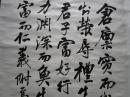 倉廩實而
榮辱禮生
君子富好行
力淵深而魚生
富而仁義附